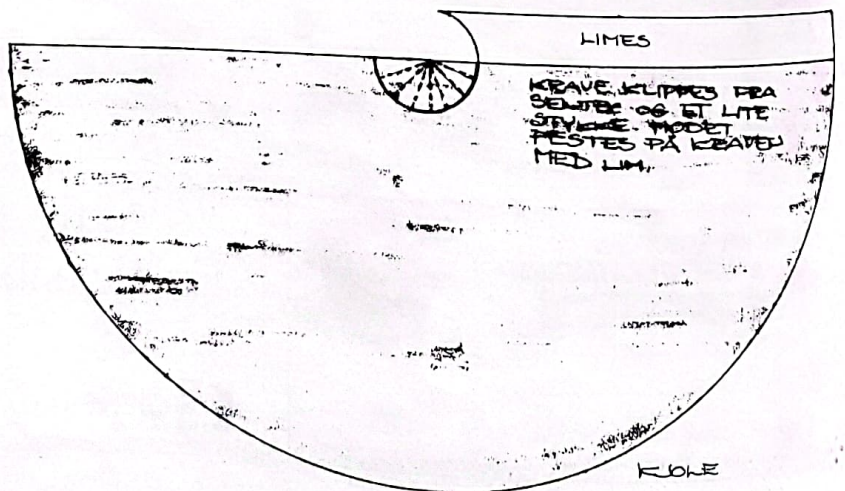 LIMES
KRAVE KLIPPES FRA
SENTER OG ET LITE
STYKKE HODET
FESTES PÅ KRAVEN
MED LIM.
KJOLE